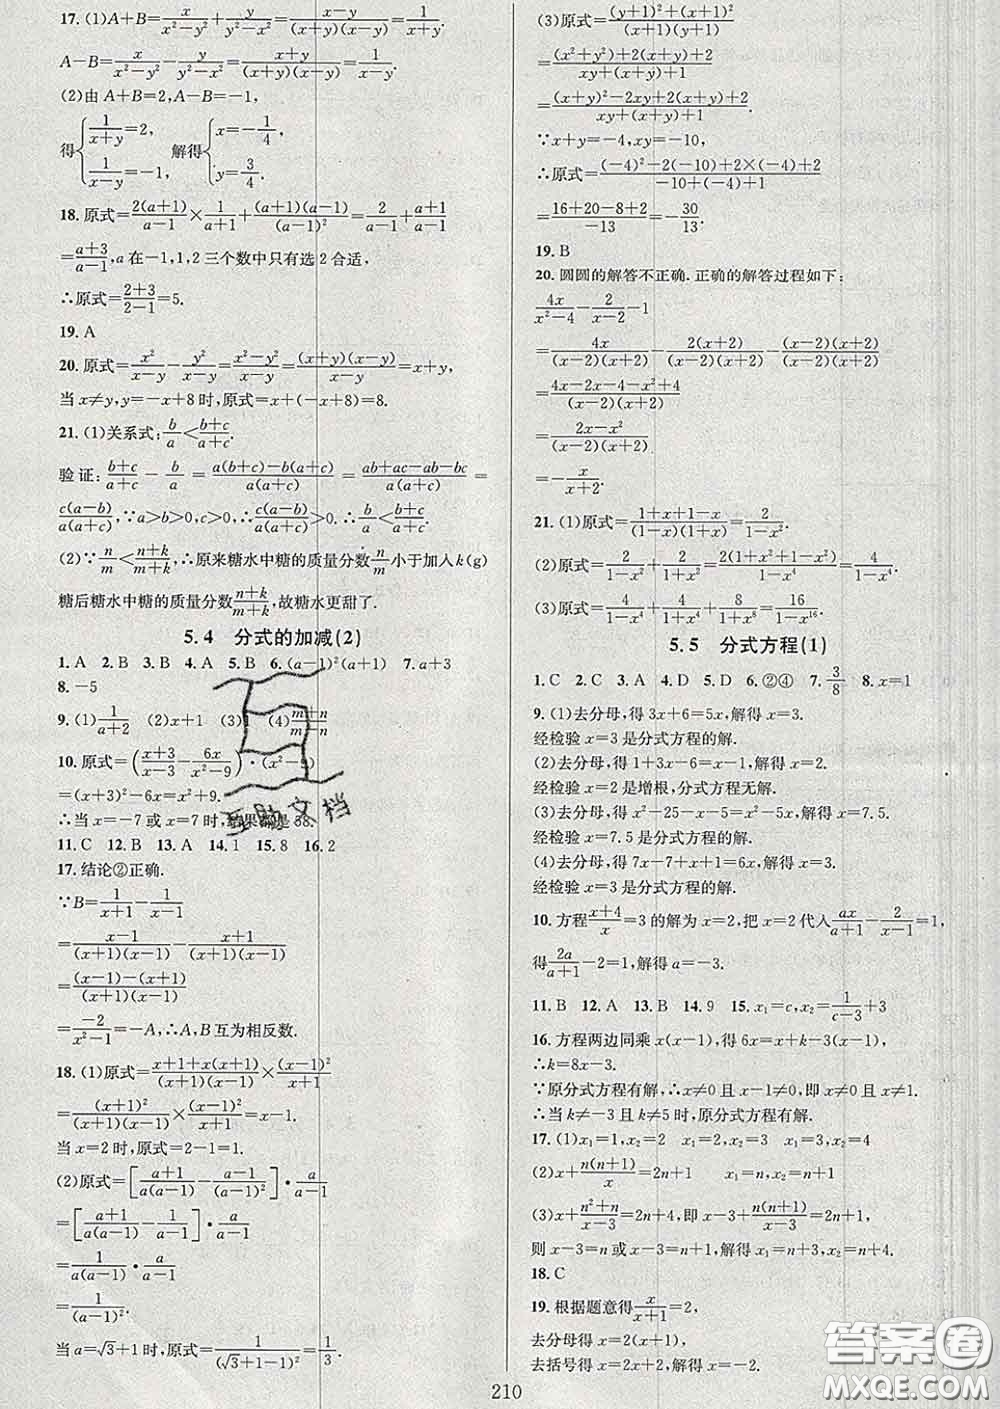 17. (1)A+B=x/(x²−y²)+y/(y²−x²)=(x−y)/((x+y)(x−y))=1/(x+y).
A−B=x/(x²−y²)−y/(y²−x²)=(x+y)/((x+y)(x−y))=1/(x−y).
(2)由 A+B=2,A−B=−1,
得{1/(x+y)=2, 1/(x−y)=−1, 解得{x=−1/4, y=3/4.
18. 原式=2(a+1)/(a−1)×1/(a+1)+(a+1)(a−1)/(a−1)²=2/(a−1)+(a+1)/(a−1)
=(a+3)/(a−1),a 在−1,1,2 三个数中只有选 2 合适,
∴原式=(2+3)/(2−1)=5.
19. A
20. 原式=x²/(x−y)−y²/(x−y)=(x²−y²)/(x−y)=(x+y)(x−y)/(x−y)=x+y,
当 x≠y,y=−x+8 时,原式=x+(−x+8)=8.
21. (1)关系式:b/a<(b+c)/(a+c).
验证:(b+c)/(a+c)−b/a=(a(b+c)−b(a+c))/(a(a+c))=(ab+ac−ab−bc)/(a(a+c))=
c(a−b)/(a(a+c)),∵a>b>0,c>0,∴c(a−b)/(a(a+c))>0.∴b/a<(b+c)/(a+c).
(2)∵n/m<(n+k)/(m+k),∴原来糖水中糖的质量分数n/m小于加入k(g)
糖后糖水中糖的质量分数(n+k)/(m+k),故糖水更甜了.
5.4 分式的加减(2)
1. A 2. B 3. B 4. A 5. B 6. (a−1)²(a+1) 7. a+3
8. −5
9. (1)1/(a+2) (2)x+1 (3)1 (4)(m+n)/(m−n)
10. 原式=((x+3)/(x−3)−6x/(x²−9))·(x²−9)
=(x+3)²−6x=x²+9.
∴当 x=−7 或 x=7 时,结果都是 58.
11. C 12. B 13. A 14. 1 15. 8 16. 2
17. 结论②正确.
∵B=1/(x+1)−1/(x−1)
=(x−1)/((x+1)(x−1))−(x+1)/((x+1)(x−1))
=((x−1)−(x+1))/((x+1)(x−1))
=−2/(x²−1)=−A,∴A,B 互为相反数.
18. (1)原式=(x+1+x(x+1))/((x+1)(x−1))×(x−1)²/(x+1)
=(x+1)²/((x+1)(x−1))×(x−1)²/(x+1)=x−1.
当 x=2 时,原式=2−1=1.
(2)原式=[(a+1)/(a(a−1))−(a−1)/(a−1)²]·a/(a−1)
=[(a+1)/(a(a−1))−1/(a−1)]·a/(a−1)
=1/(a(a−1))·a/(a−1)
=1/(a−1)².
当 a=√3+1 时,原式=1/(√3+1−1)²=1/3.
(3)原式=((y+1)²+(x+1)²)/((x+1)(y+1))
=((x²+y²)+2(x+y)+2)/(xy+(x+y)+1)
=((x+y)²−2xy+2(x+y)+2)/(xy+(x+y)+1)
∵x+y=−4,xy=−10,
∴原式=((−4)²−2(−10)+2×(−4)+2)/(−10+(−4)+1)
=(16+20−8+2)/(−13)=−30/13.
19. B
20. 圆圆的解答不正确. 正确的解答过程如下:
4x/(x²−4)−2/(x−2)−1
=4x/((x−2)(x+2))−2(x+2)/((x−2)(x+2))−(x−2)(x+2)/((x−2)(x+2))
=(4x−2x−4−x²+4)/((x−2)(x+2))
=(2x−x²)/((x−2)(x+2))
=−x/(x+2).
21. (1)原式=(1+x+1−x)/((1−x)(1+x))=2/(1−x²).
(2)原式=2/(1−x²)+2/(1+x²)=2(1+x²+1−x²)/(1−x⁴)=4/(1−x⁴)
(3)原式=4/(1−x⁴)+4/(1+x⁴)+8/(1+x⁸)=16/(1−x¹⁶).
5.5 分式方程(1)
1. C 2. C 3. A 4. D 5. D 6. ②④ 7. −3/8 8. x=1
9. (1)去分母,得 3x+6=5x,解得 x=3.
经检验 x=3 是分式方程的解.
(2)去分母,得 1+3x−6=x−1,解得 x=2.
经检验 x=2 是增根,分式方程无解.
(3)去分母,得 x²−25−x−5=x²−5x,解得 x=7.5.
经检验 x=7.5 是分式方程的解.
(4)去分母,得 7x−7+x+1=6x,解得 x=3.
经检验 x=3 是分式方程的解.
10. 方程(x+4)/x=3 的解为 x=2,把 x=2 代入ax/(a+1)−2/(x−1)=1,
得2a/(a+1)−2=1,解得 a=−3.
11. B 12. A 13. B 14. 9 15. x₁=c,x₂=1/(c−3)+3
16. 方程两边同乘 x(x−1),得 6x=x+k−3(x−1),
∴k=8x−3.
∵原分式方程有解,∴x≠0 且 x−1≠0,即 x≠0 且 x≠1.
∴当 k≠−3 且 k≠5 时,原分式方程有解.
17. (1)x₁=1,x₂=2 x₁=2,x₂=3 x₁=3,x₂=4
(2)x+n(n+1)/x=2n+1 x₁=n,x₂=n+1
(3)x+(n²+n)/(x−3)=2n+4,即 x−3+n(n+1)/(x−3)=2n+1,
则 x−3=n 或 x−3=n+1,解得 x₁=n+3,x₂=n+4.
18. C
19. 根据题意得x/(x+1)=2,
去分母得 x=2(x+1),
去括号得 x=2x+2,解得 x=−2.
210
互助文档
答案圈
MXQE.COM